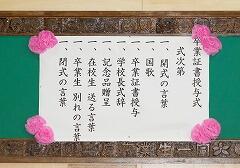 卒業証書授与式
式次第
一、開式の言葉
一、国歌
一、卒業証書授与
一、学校長式辞
一、記念品贈呈
一、在校生 送る言葉
一、卒業生 別れの言葉
一、閉式の言葉